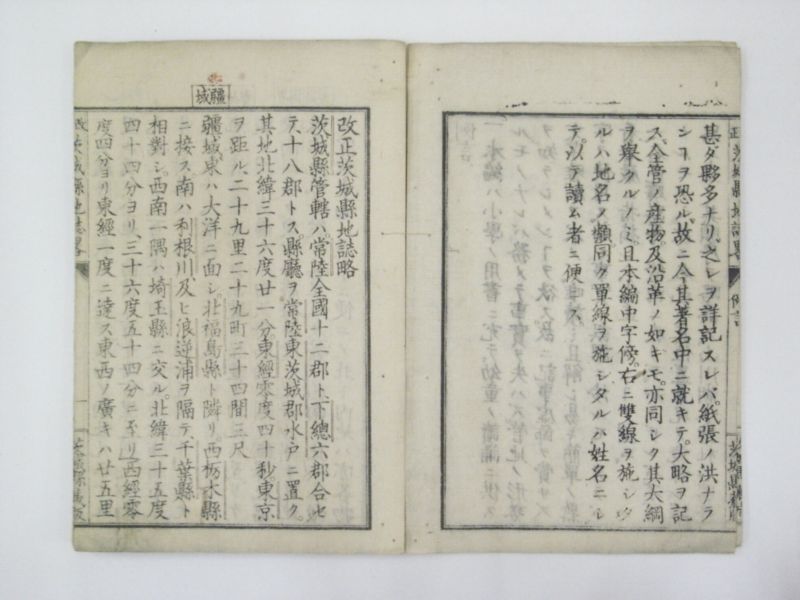 甚タ夥多ナリ之レヲ詳記スレバ紙張ノ洪ナラ
ンヿヲ恐ル故ニ今其著名中ニ就キテ大略ヲ記
ス全管ノ産物及沿革ノ如キモ亦同シク其大綱
ヲ擧クルノミ且本編中字傍右ニ雙線ヲ施シタ
ルハ地名ノ類同ク單線ヲ施シタルハ姓名ニシ
テ以テ讀ム者ニ便ス
疆域
改正茨城縣地誌略
茨城縣管轄ハ常陸全國十二郡ト下總六郡合セ
テ十八郡トス縣廳ヲ常陸東茨城郡水戸ニ置ク
其地北緯三十六度廿一分東經零度四十秒東京
ヲ距ル二十九里二十九町三十四間三尺
疆域東ハ大洋ニ面シ北福島縣ト隣リ西栃木縣
ニ接ス南ハ利根川及ヒ浪逆浦ヲ隔テ千葉縣ト
相對シ西南一隅ハ埼玉縣ニ交ル北緯三十五度
四十四分ヨリ三十六度五十四分ニ至リ西經零
度四分ヨリ東經一度ニ達ス東西ノ廣キハ廿五里
茨城縣地誌略